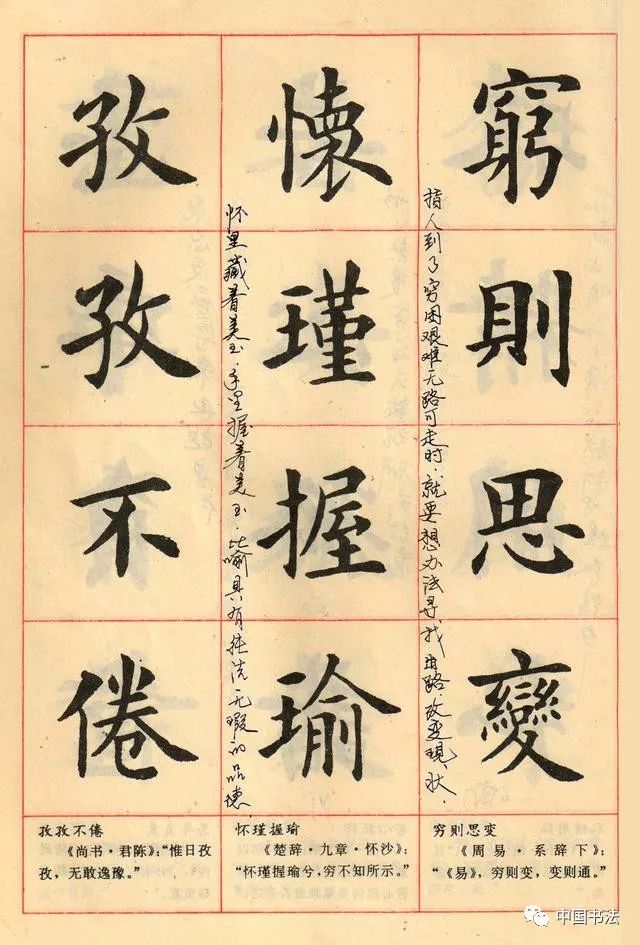 窮則思變
指人到了穷困艰难无路可走时.就要想办法寻找出路.改变现状.
懷瑾握瑜
怀里藏着美玉.手里握着美玉.比喻具有纯洁无瑕的品德.
孜孜不倦
穷则思变
《周易·系辞下》:
“《易》,穷则变,变则通。”
怀瑾握瑜
《楚辞·九章·怀沙》:
“怀瑾握瑜兮,穷不知所示。”
孜孜不倦
《尚书·君陈》:“惟日孜
孜,无敢逸豫。”
中国书法